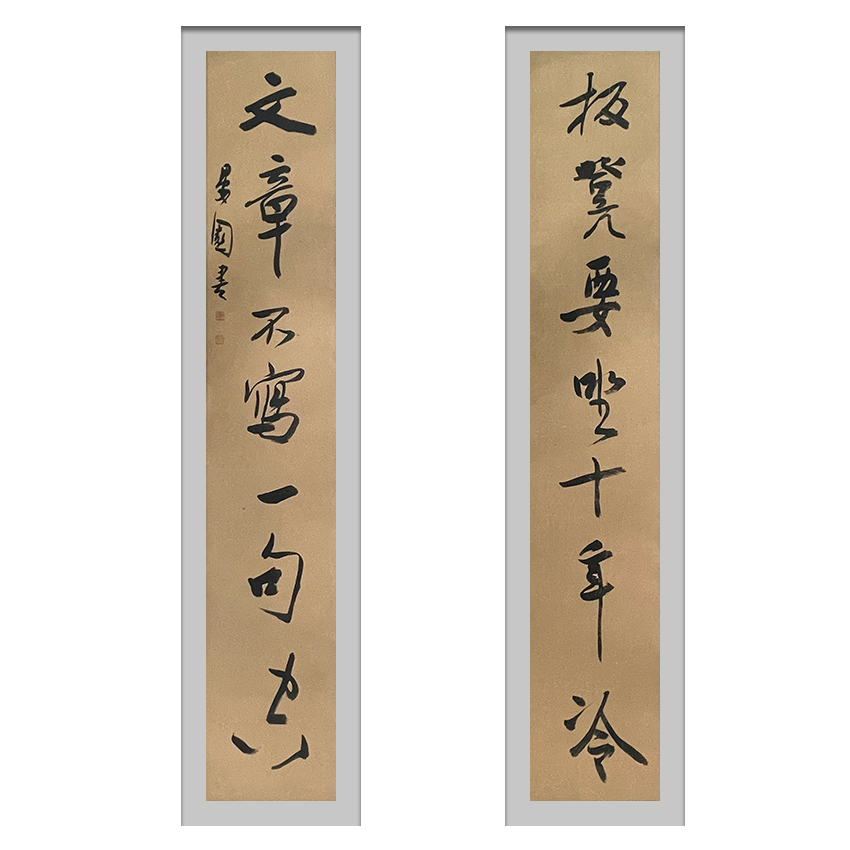 板凳要坐十年冷
文章不寫一句空
書